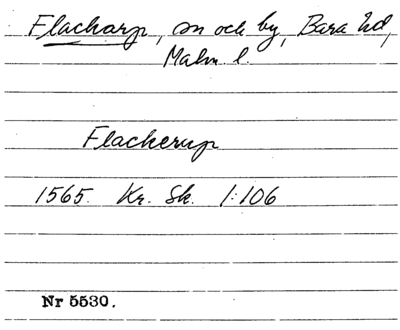 Flackarp, sn och by, Bara hd,
Malm. l.
Flackerup
1565. Kr. Sk. 1:106
Nr 5530.